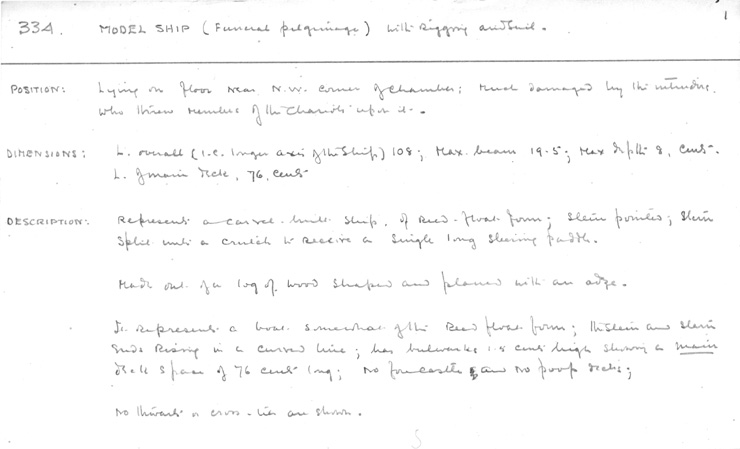 1
334. MODEL SHIP (Funeral pilgrimage) with Rigging and Sail.
POSITION: Lying on floor near N.W. corner of Chamber; Much damaged by the intruders,
who threw members of the Chariots upon it.
DIMENSIONS: L. overall (i.e. longer axis of the ship) 108; Max. beam 19.5; Max depth 8, cents.
L. of main deck, 76, cents
DESCRIPTION: Represents a carvel-built ship, of Reed-float form; Stem pointed; Stern
Split into a crutch to receive a single long steering paddle.
Made out of a log of wood shaped and planed with an adze.
It represents a boat somewhat of the Reed float form; the stem and stern
ends rising in a curved line; has bulwarks 1.5 cents high showing a main
deck space of 76 cents long; No forecastle and No poop decks;
No thwarts or cross-ties are shown.